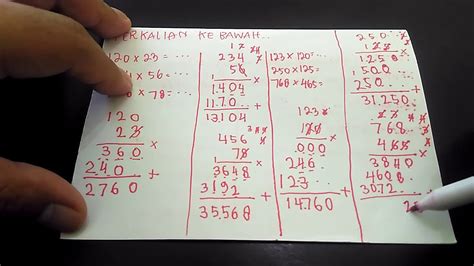 PERKALIAN KE BAWAH..
120 × 23 = ...
4 × 56 = ...
× 78 = ...
120
23
×
360
240
+
2760
234
56
×
1.404
11.70
+
13.104
456
78
×
3648
3192
+
35.568
123 × 120 =
250 × 125 =
768 × 465 =
123
120
×
000
246
123
+
14.760
250
×
1250
500
250
+
31.250
768
465
×
3840
4608
3072
+